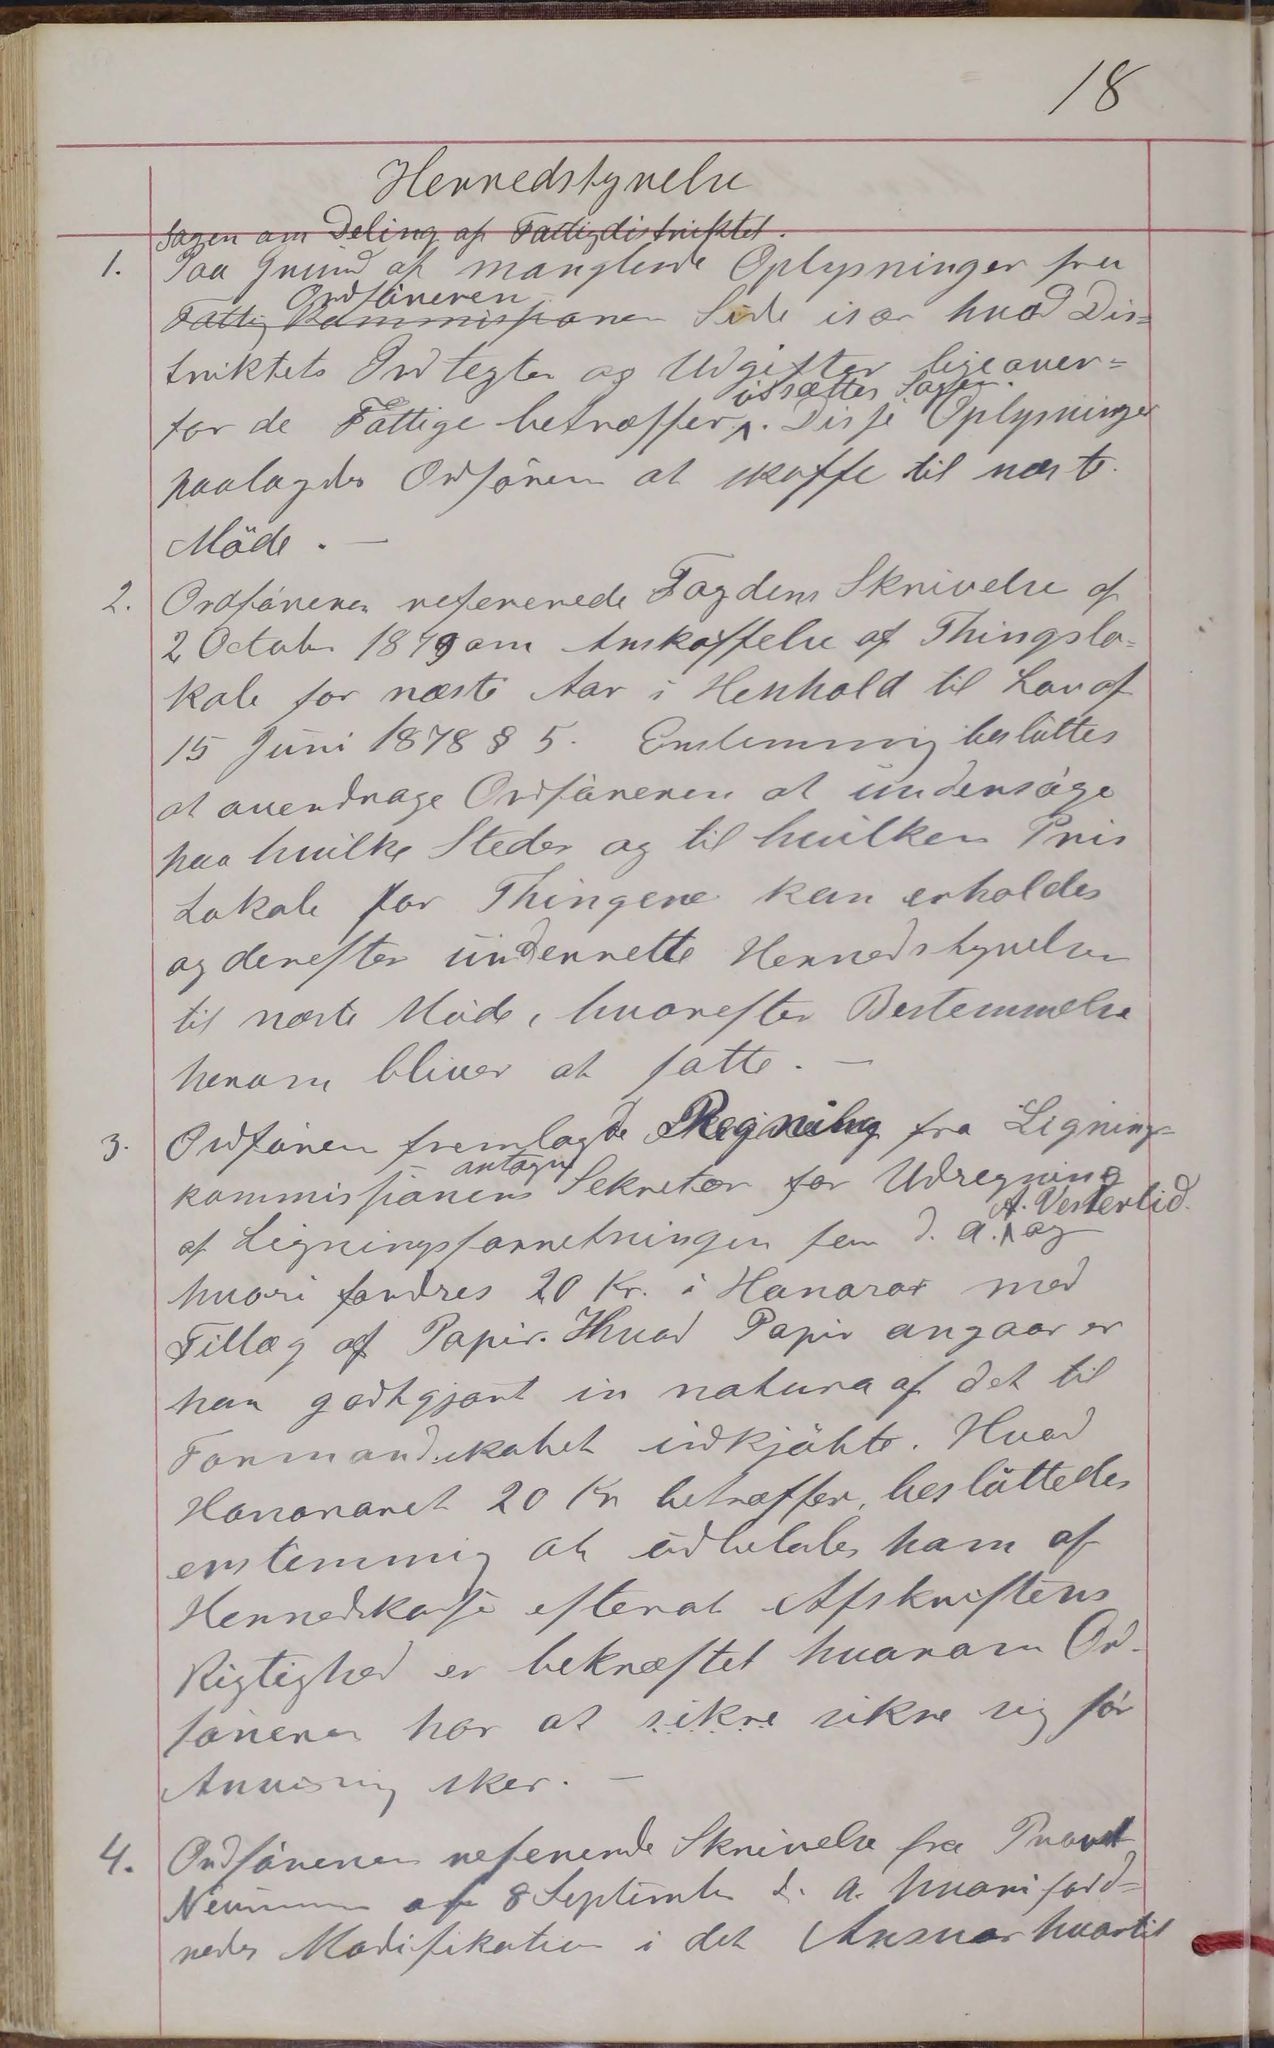 18
Herredstyrelse
Sagen om Deling af Fattigdistriktet.
1. Paa Grund af manglende Oplysninger fra
Ordföreren
Fattig Kommissionen Side især hvad Dis=
triktets Indtegter og Udgifter ligeover=
udsættes Sagen.
for de Fattige betræffer. Disse Oplysninger
paalagdes Ordfören at skaffe til næste
Möde. —
2. Ordföreren refererede Fogdens Skrivelse af
2 October 1879 om Anskaffelse af Thingslo=
kale for næste Aar i Henhold til Lov af
15 Juni 1878 § 5. Enstemmig besluttes
at overdrage Ordföreren at undersöge
paa hvilke Steder og til hvilken Pris
Lokale for Thingene kan erholdes
og derefter underrette Herredstyrelsen
til næste Möde, hvorefter Bestemmelse
herom bliver at fatte. —
3. Ordfören fremlagde Regning fra Lignings=
antagne
kommissionens Sekretær for Udregning
A. Vesterlid
af Ligningsforretningen for d. A. og
hvori fordres 20 Kr. i Honorar med
Tillæg af Papir. Hvad Papir angaar er
han godtgjort in natura af det til
Formandskabet indkjöbte. Hvad
Honoraret 20 Kr betræffer, besluttedes
enstemmig at udbetales ham af
Herredskasse efterat Afskriftens
Rigtighed er bekræftet hvorom Ord-
föreren har at sikre sikre sig för
Anvisning sker. —
4. Ordföreren refererede Skrivelse fra Provst
Neumann af 8 September d. A. hvori ford=
redes Modifikation i det Ansvar hvortil